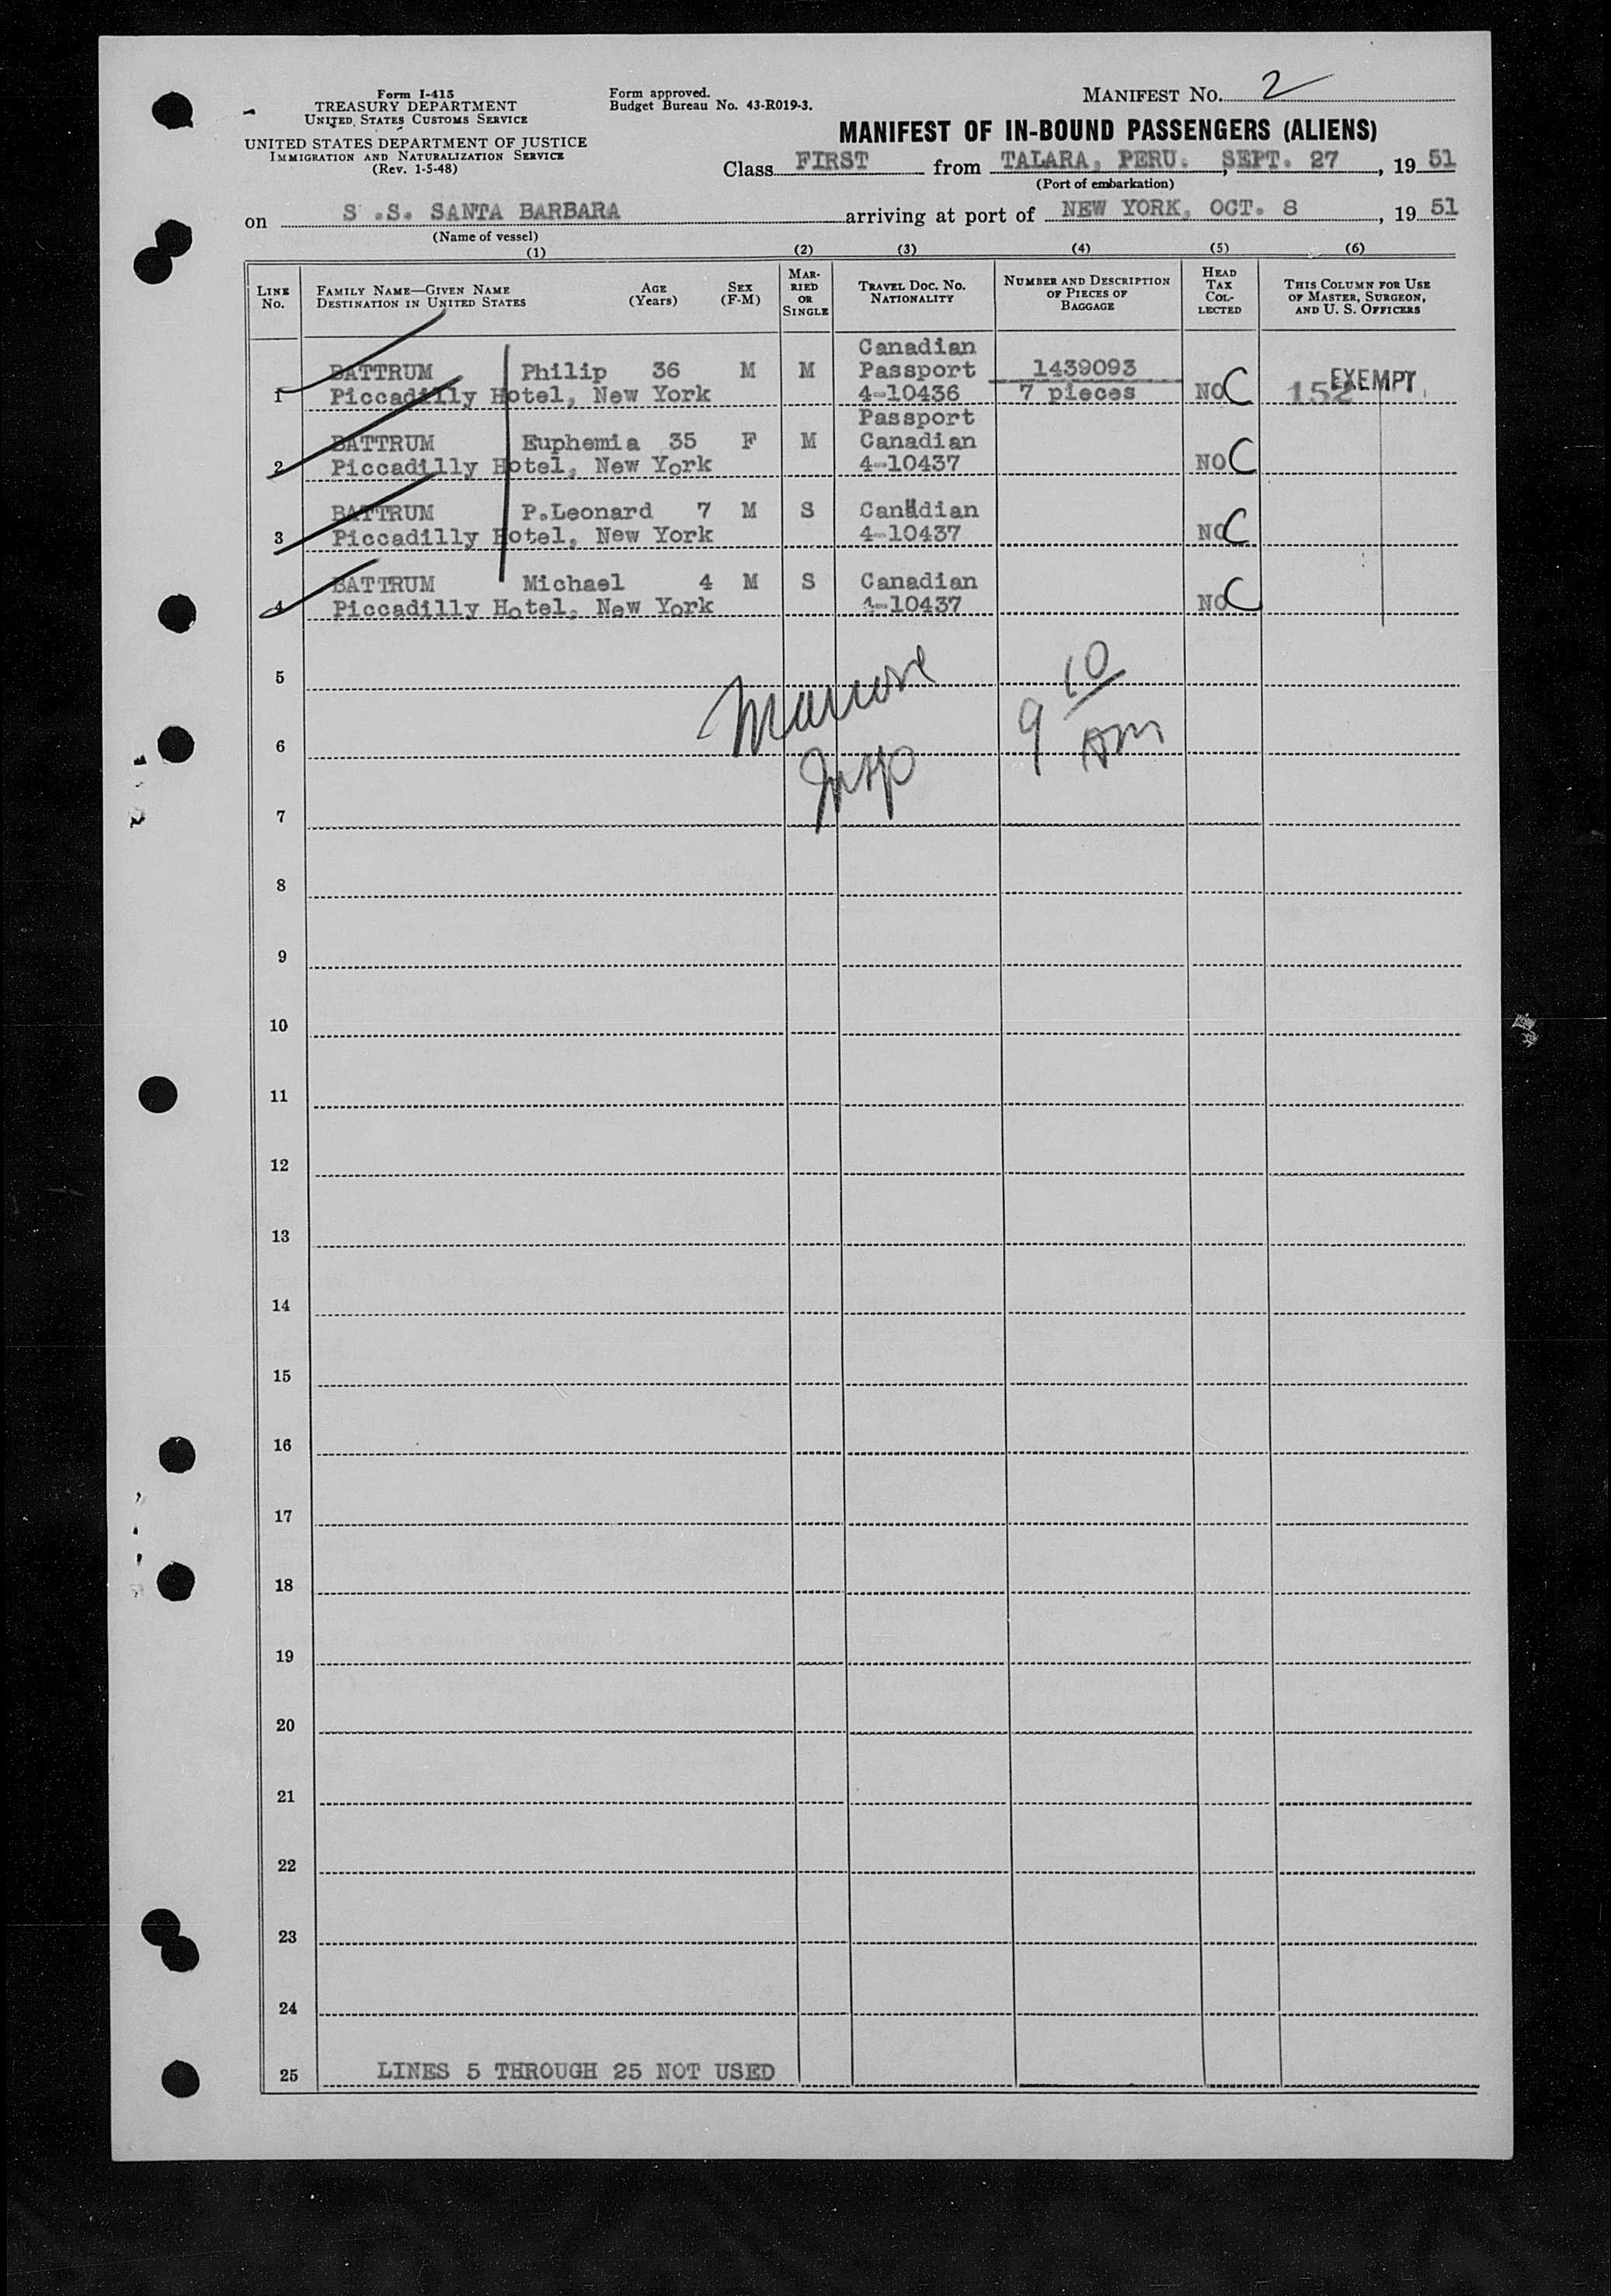 Form I-415
TREASURY DEPARTMENT
UNITED STATES CUSTOMS SERVICE
UNITED STATES DEPARTMENT OF JUSTICE
IMMIGRATION AND NATURALIZATION SERVICE
(Rev. 1-5-48)
Form approved.
Budget Bureau No. 43-R019-3.
MANIFEST NO. 2
MANIFEST OF IN-BOUND PASSENGERS (ALIENS)
Class FIRST from TALARA, PERU. , SEPT. 27 , 19 51
(Port of embarkation)
on S .S. SANTA BARBARA arriving at port of NEW YORK, OCT. 8 , 19 51
(Name of vessel)
(1) (2) (3) (4) (5) (6)
LINE No. FAMILY NAME—GIVEN NAME DESTINATION IN UNITED STATES AGE (Years) SEX (F-M) MARRIED OR SINGLE TRAVEL DOC. NO. NATIONALITY NUMBER AND DESCRIPTION OF PIECES OF BAGGAGE HEAD TAX COLLECTED THIS COLUMN FOR USE OF MASTER, SURGEON, AND U. S. OFFICERS
Canadian
BATTRUM Philip 36 M M Passport 1439093
1 Piccadilly Hotel, New York 4-10436 7 pieces NO C 152 EXEMPT
Passport
BATTRUM Euphemia 35 F M Canadian
2 Piccadilly Hotel, New York 4-10437 NO C
BATTRUM P.Leonard 7 M S Canadian
3 Piccadilly Hotel, New York 4-10437 NO C
BATTRUM Michael 4 M S Canadian
4 Piccadilly Hotel, New York 4-10437 NO C
5
9 10 AM
6
Insp
7
8
9
10
11
12
13
14
15
16
17
18
19
20
21
22
23
24
25 LINES 5 THROUGH 25 NOT USED